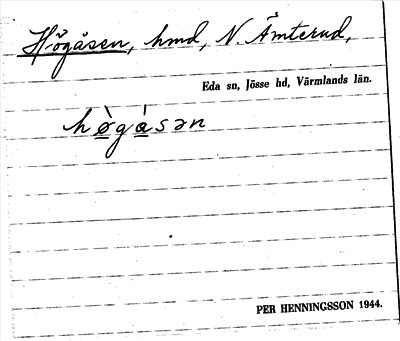 Högåsen, hmd, N. Ämterud,
Eda sn, Jösse hd, Värmlands län.
hø̀gàsən
PER HENNINGSSON 1944.